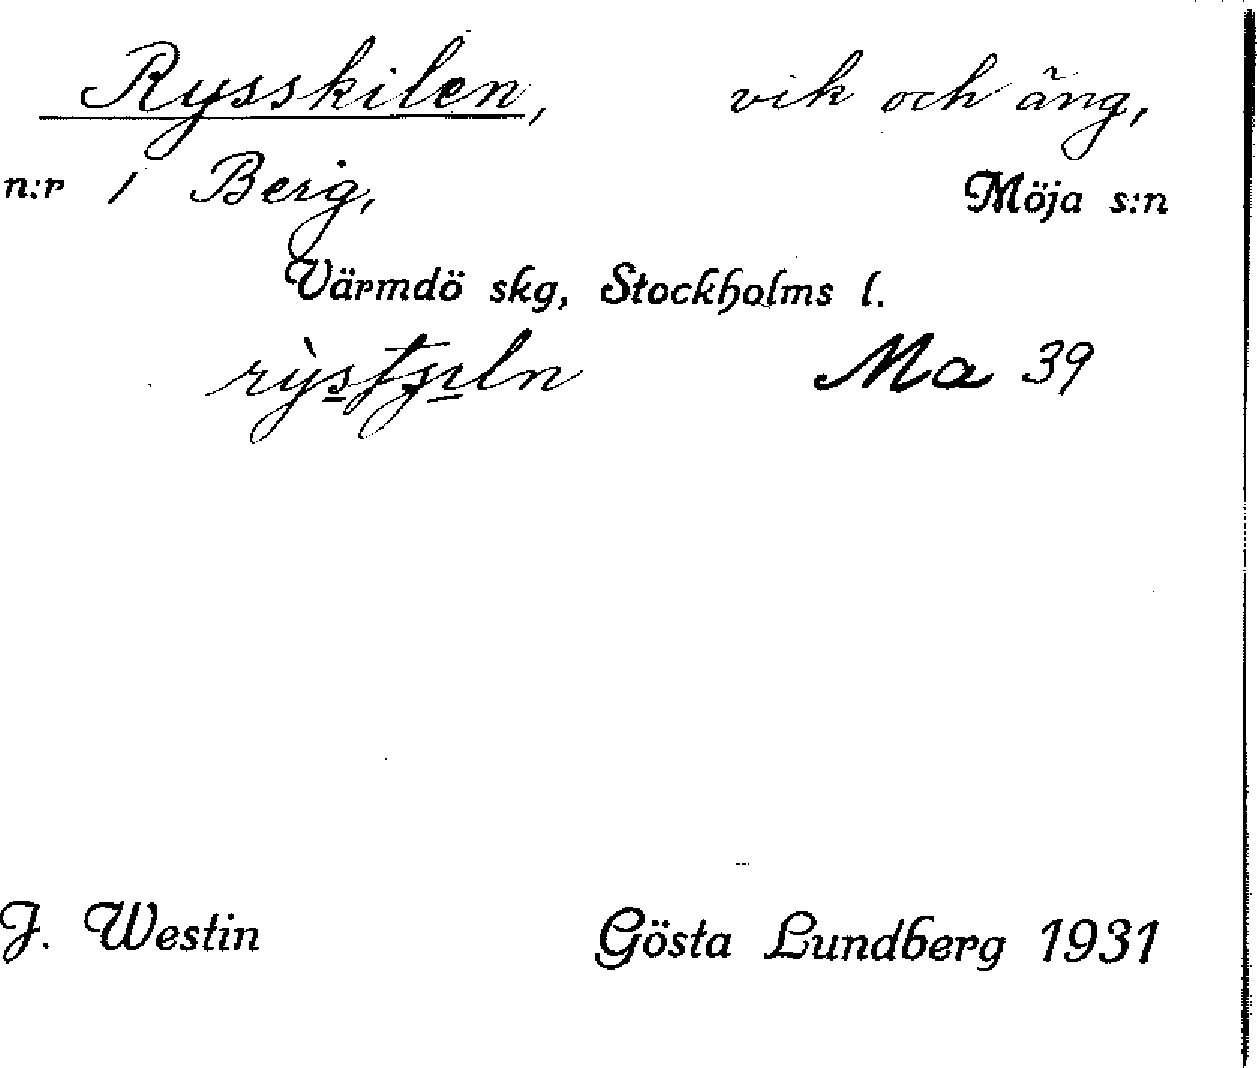 Rysskilen, vik och äng,
n:r 1 Berg, Möja s:n
Värmdö skg, Stockholms l.
Ma 39
J. Westin Gösta Lundberg 1931